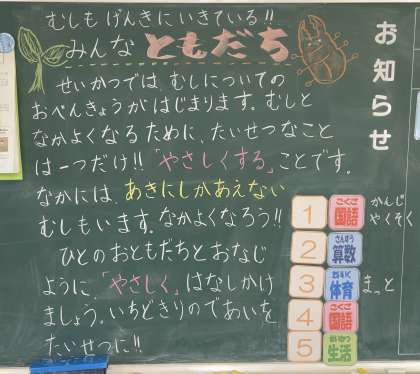 むしも げんきに いきている!!
みんな ともだち
せいかつでは、むしについての
おべんきょうが はじまります。むしと
なかよくなる ために、たいせつなこと
は一つだけ!!「やさしくする」ことです。
なかには、あきにしかあえない
むしもいます。なかよくなろう!!
ひとの おともだちと おなじ
ように、「やさしく」はなしかけ
ましょう。いちどきりのであいを
たいせつに!!
お知らせ
1 こくご 国語 かんじ やくそく
2 さんすう 算数
3 たいいく 体育 まっと
4 こくご 国語
5 せいかつ 生活